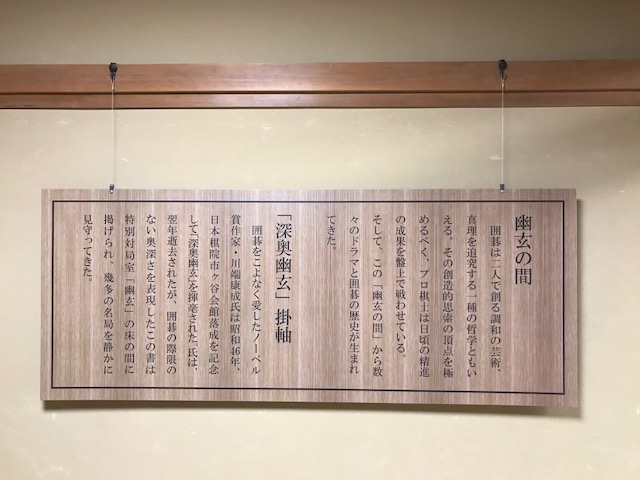 幽玄の間
囲碁は二人で創る調和の芸術、
真理を追究する一種の哲学ともい
える。その創造的思索の頂点を極
めるべく、プロ棋士は日頃の精進
の成果を盤上で戦わせている。
そして、この「幽玄の間」から数
々のドラマと囲碁の歴史が生まれ
てきた。
「深奥幽玄」掛軸
囲碁をこよなく愛したノーベル
賞作家・川端康成氏は昭和46年、
日本棋院市ヶ谷会館落成を記念
して「深奥幽玄」を揮毫された。氏は、
翌年逝去されたが、囲碁の際限の
ない奥深さを表現したこの書は
特別対局室「幽玄」の床の間に
掲げられ、幾多の名局を静かに
見守ってきた。